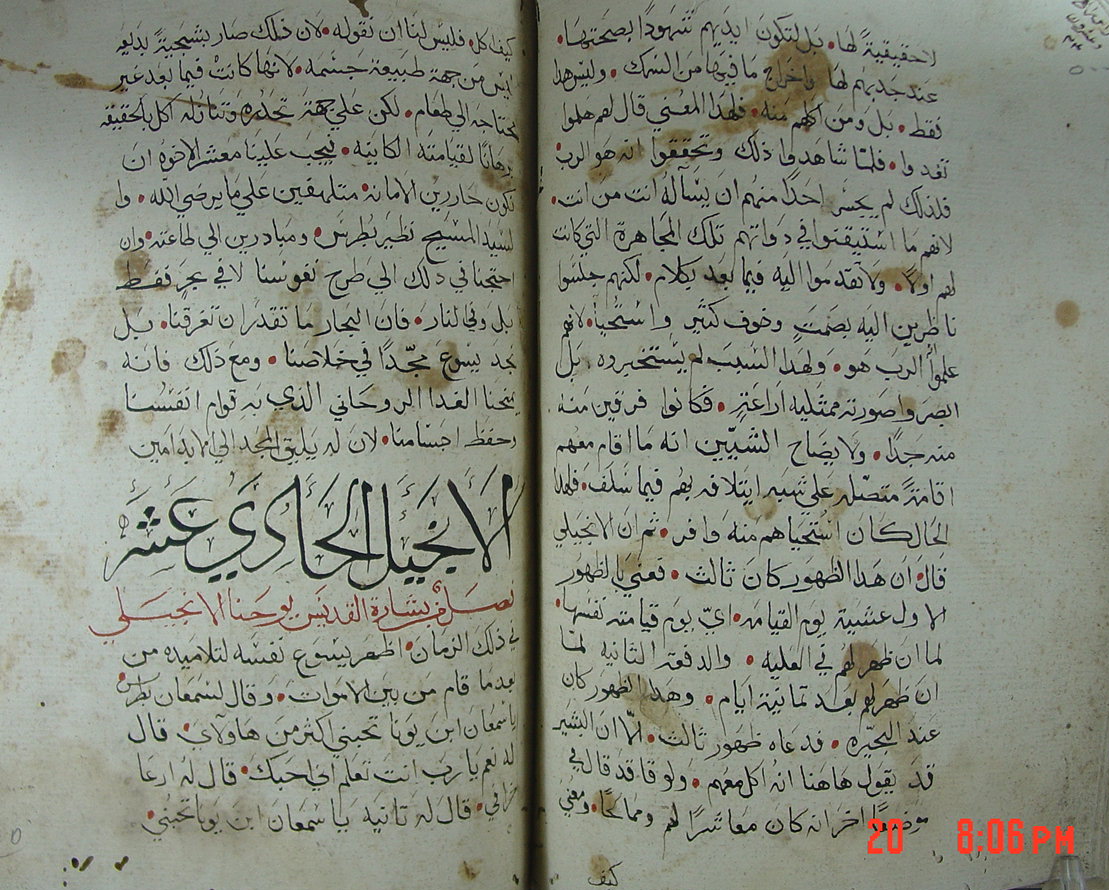 لاحقيقيةً لها • بل لتكون ايديهم شهودًا بصحتها •
عند جذبهم لها واخراج ما فيها من السمك • وليس هذا
فقط • بل ومن اكلهم منه • فلهذا المعني قال لهم هلموا
تغدوا • فلما شاهدوا ذلك وتحققوا انه هو الرب
فلذلك لم يجسر احدًا منهم ان يسآله انت من انت •
لانهم ما استيقنوا في ذواتهم تلك المجاهرة التي كانت
لهم اولاً • ولا تقدموا اليه فيما بعد بكلام • لكنهم جلسوا
ناظرين اليه بصمتٍ وخوف كثير واستحيا • لانهم
علموا الرب هو • ولهذا السبب لم يستخبروه • بل
ابصروا صورته ممثليه اراعةٍ • فكانوا فرقين منه
منه جدًا • ولايضاح الشيين انه ما اقام معهم
اقامةً متصله علي شبيه ايتلافه بهم فيما سلف • فلهذا
الحال كان استحياهم منه وافر • ثم ان الانجيلي
قال • ان هذا الظهور كان ثالث • فعني بالظهور
الاول عشية يوم القيامه • اي يوم قيامته نفسها •
لما ان ظهر لهم في العليه • والدفعة الثانيه لما
ان ظهر لهم بعد ثمانية ايام • وهذا الظهور كان
عند البحيره • فدعاه ظهور ثالث • الا ان البشير
قد يقول هاهنا انه اكل معهم • ولوقا قد قال في
موضعًا اخر انه كان معاشرًا لهم ومماحًا • ومعني
كيف
كيف اكل • فليس لنا ان نقوله • لان ذلك صار بسجيةً بديعه
ليس من جهة طبيعة جسمه • لانها كانت فيما بعد غير
محتاجه الي طعام • لكن علي جهة تحدره وتنازله اكل بالحقيقه
برهانًا لقيامته الكاينه • فيجب علينا معشر الاخوه ان
نكون حارين الامانه متلهفين علي ما يرضي الله • وا
لسيد المسيح نظير بطرس • ومبادرين الي طاعته • وان
احتجنا في ذلك الي طرح نفوسنا لا في بحرٍ فقط
بل وفي النار • فان البحار ما تقدر ان تغرقنا • بل
نجد يسوع مجدًا في خلاصنا • ومع ذلك فانه
يمنحنا الغدا الروحاني الذي به قوام انفسنا
وحفظ اجسامنا • لان له يليق المجد الي الابد امين
الانجيل الحادي عشر
فصل من بشارة القديس يوحنا الانجيلي
في ذلك الزمان • اظهر يسوع نفسه لتلاميذه من
بعد ما قام من بين الاموات • وقال لسمعان بطرس
يا سمعان ابن يونا تحبني اكثر من هاولاي • قال
له نعم يارب انت تعلم اني احبك • قال له ارعا
خرافي • قال له ثانيه يا سمعان ابن يونا تحبني •
20 8:06 PM